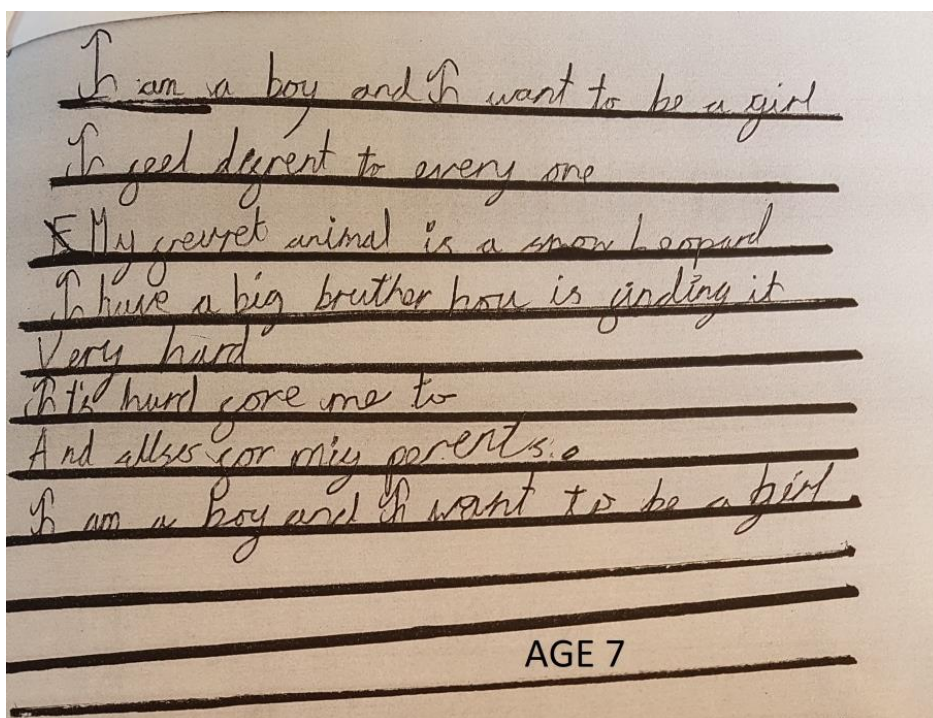 I am a boy and I want to be a girl
I feel difrent to every one
My feuret animal is a snow Leopard
I have a big bruther hou is finding it
Very hard
It's hard fore me to
And allses for miy perents.
I am a boy and I want to be a girl
AGE 7